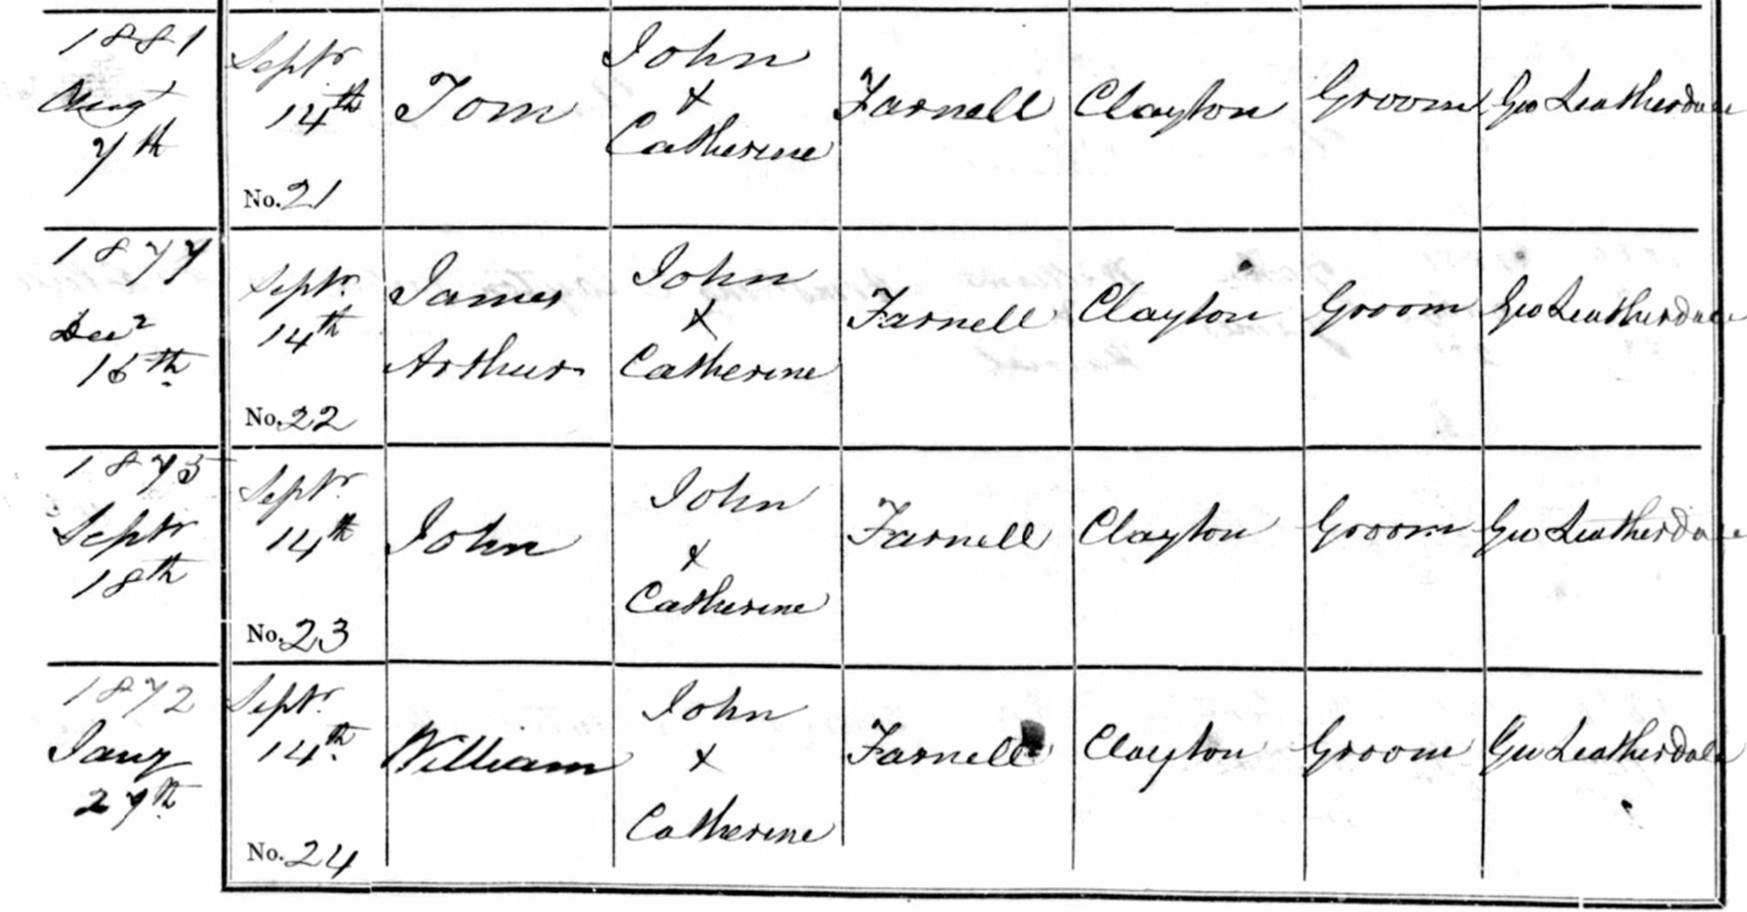 1881
Augt
7th
Septr
14th
No. 21
Tom
John
+
Catherine
Farnell
Clayton
Groom
Geo Leatherdale
1877
Decr
16th
Septr
14th
No. 22
James
Arthur
John
+
Catherine
Farnell
Clayton
Groom
Geo Leatherdale
1875
Septr
18th
Septr
14th
No. 23
John
John
+
Catherine
Farnell
Clayton
Groom
Geo Leatherdale
1872
Jany
27th
Septr
14th
No. 24
William
John
+
Catherine
Farnell
Clayton
Groom
Geo Leatherdale